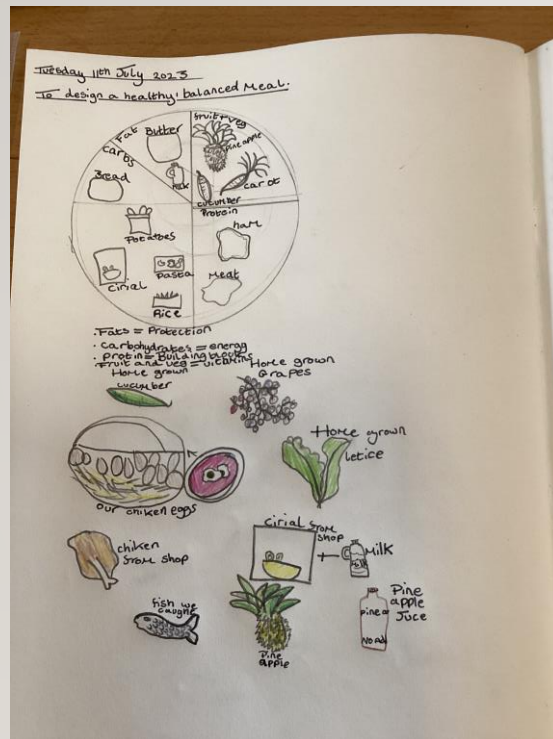 Tuesday 11th July 2023
To design a healthy, balanced Meal.
Fat
Butter
Milk
carbs
Bread
fruit + veg
Pine apple
carot
cucumber
Protein
ham
Meat
Potatoes
cirial
Pasta
Rice
. Fats = Protection
. carbohydrates = energy
. Protin = Building blocks
Fruit and veg = vitamins
Home grown
cucumber
Home grown
Grapes
Home grown
letice
our chiken eggs
chiken
from shop
cirial from
shop
+
Milk
fish we
caught
Pine
apple
Pine
apple
Juce
Pine a
No Ad